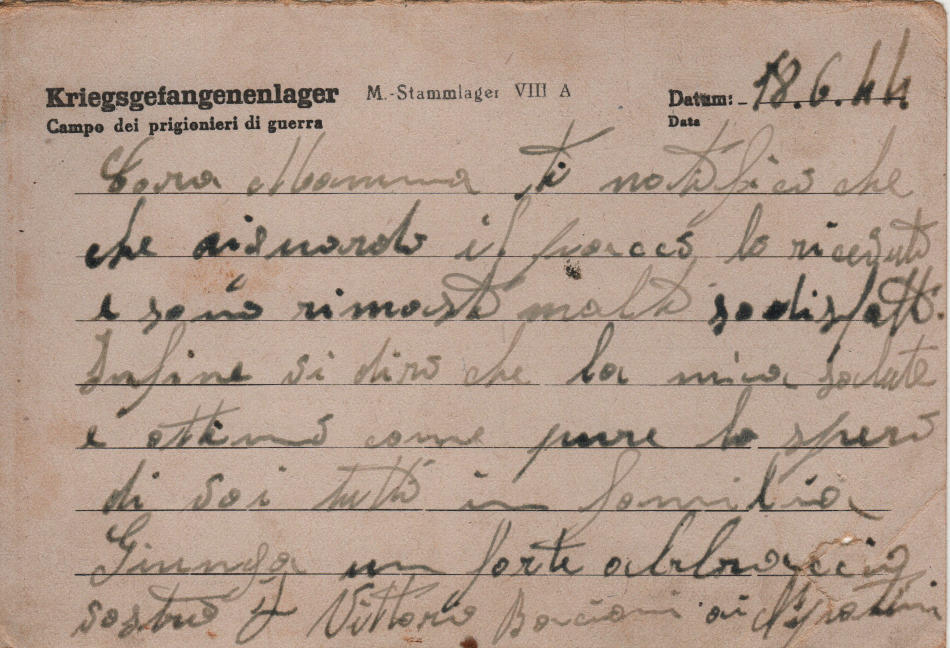 Kriegsgefangenenlager M.-Stammlager VIII A Datum: 18.6.44
Campo dei prigionieri di guerra Data
Cara Mamma ti notifico che
che riguardo il pacco lo ricevuto
e sono rimasto molto sodisfatto.
Infine vi dirò che la mia salute
e ottima come pure lo spero
di voi tutti in familia
Giunga un forte abbraccio
vostro F Vittorio